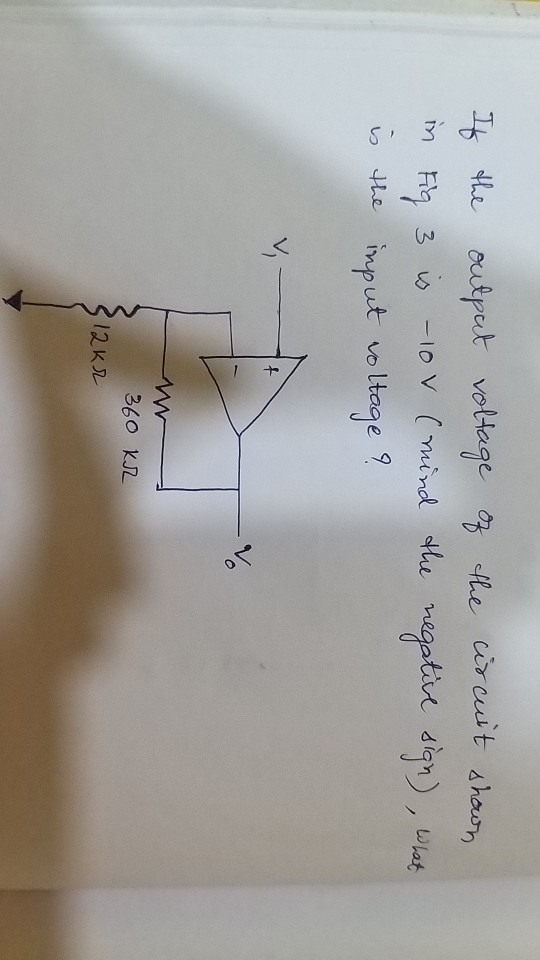 If the output voltage of the circuit shown,
in Fig 3 is -10V (mind the negative sign), what
is the input voltage?
V₁
+
-
V₀
360 KΩ
12KΩ